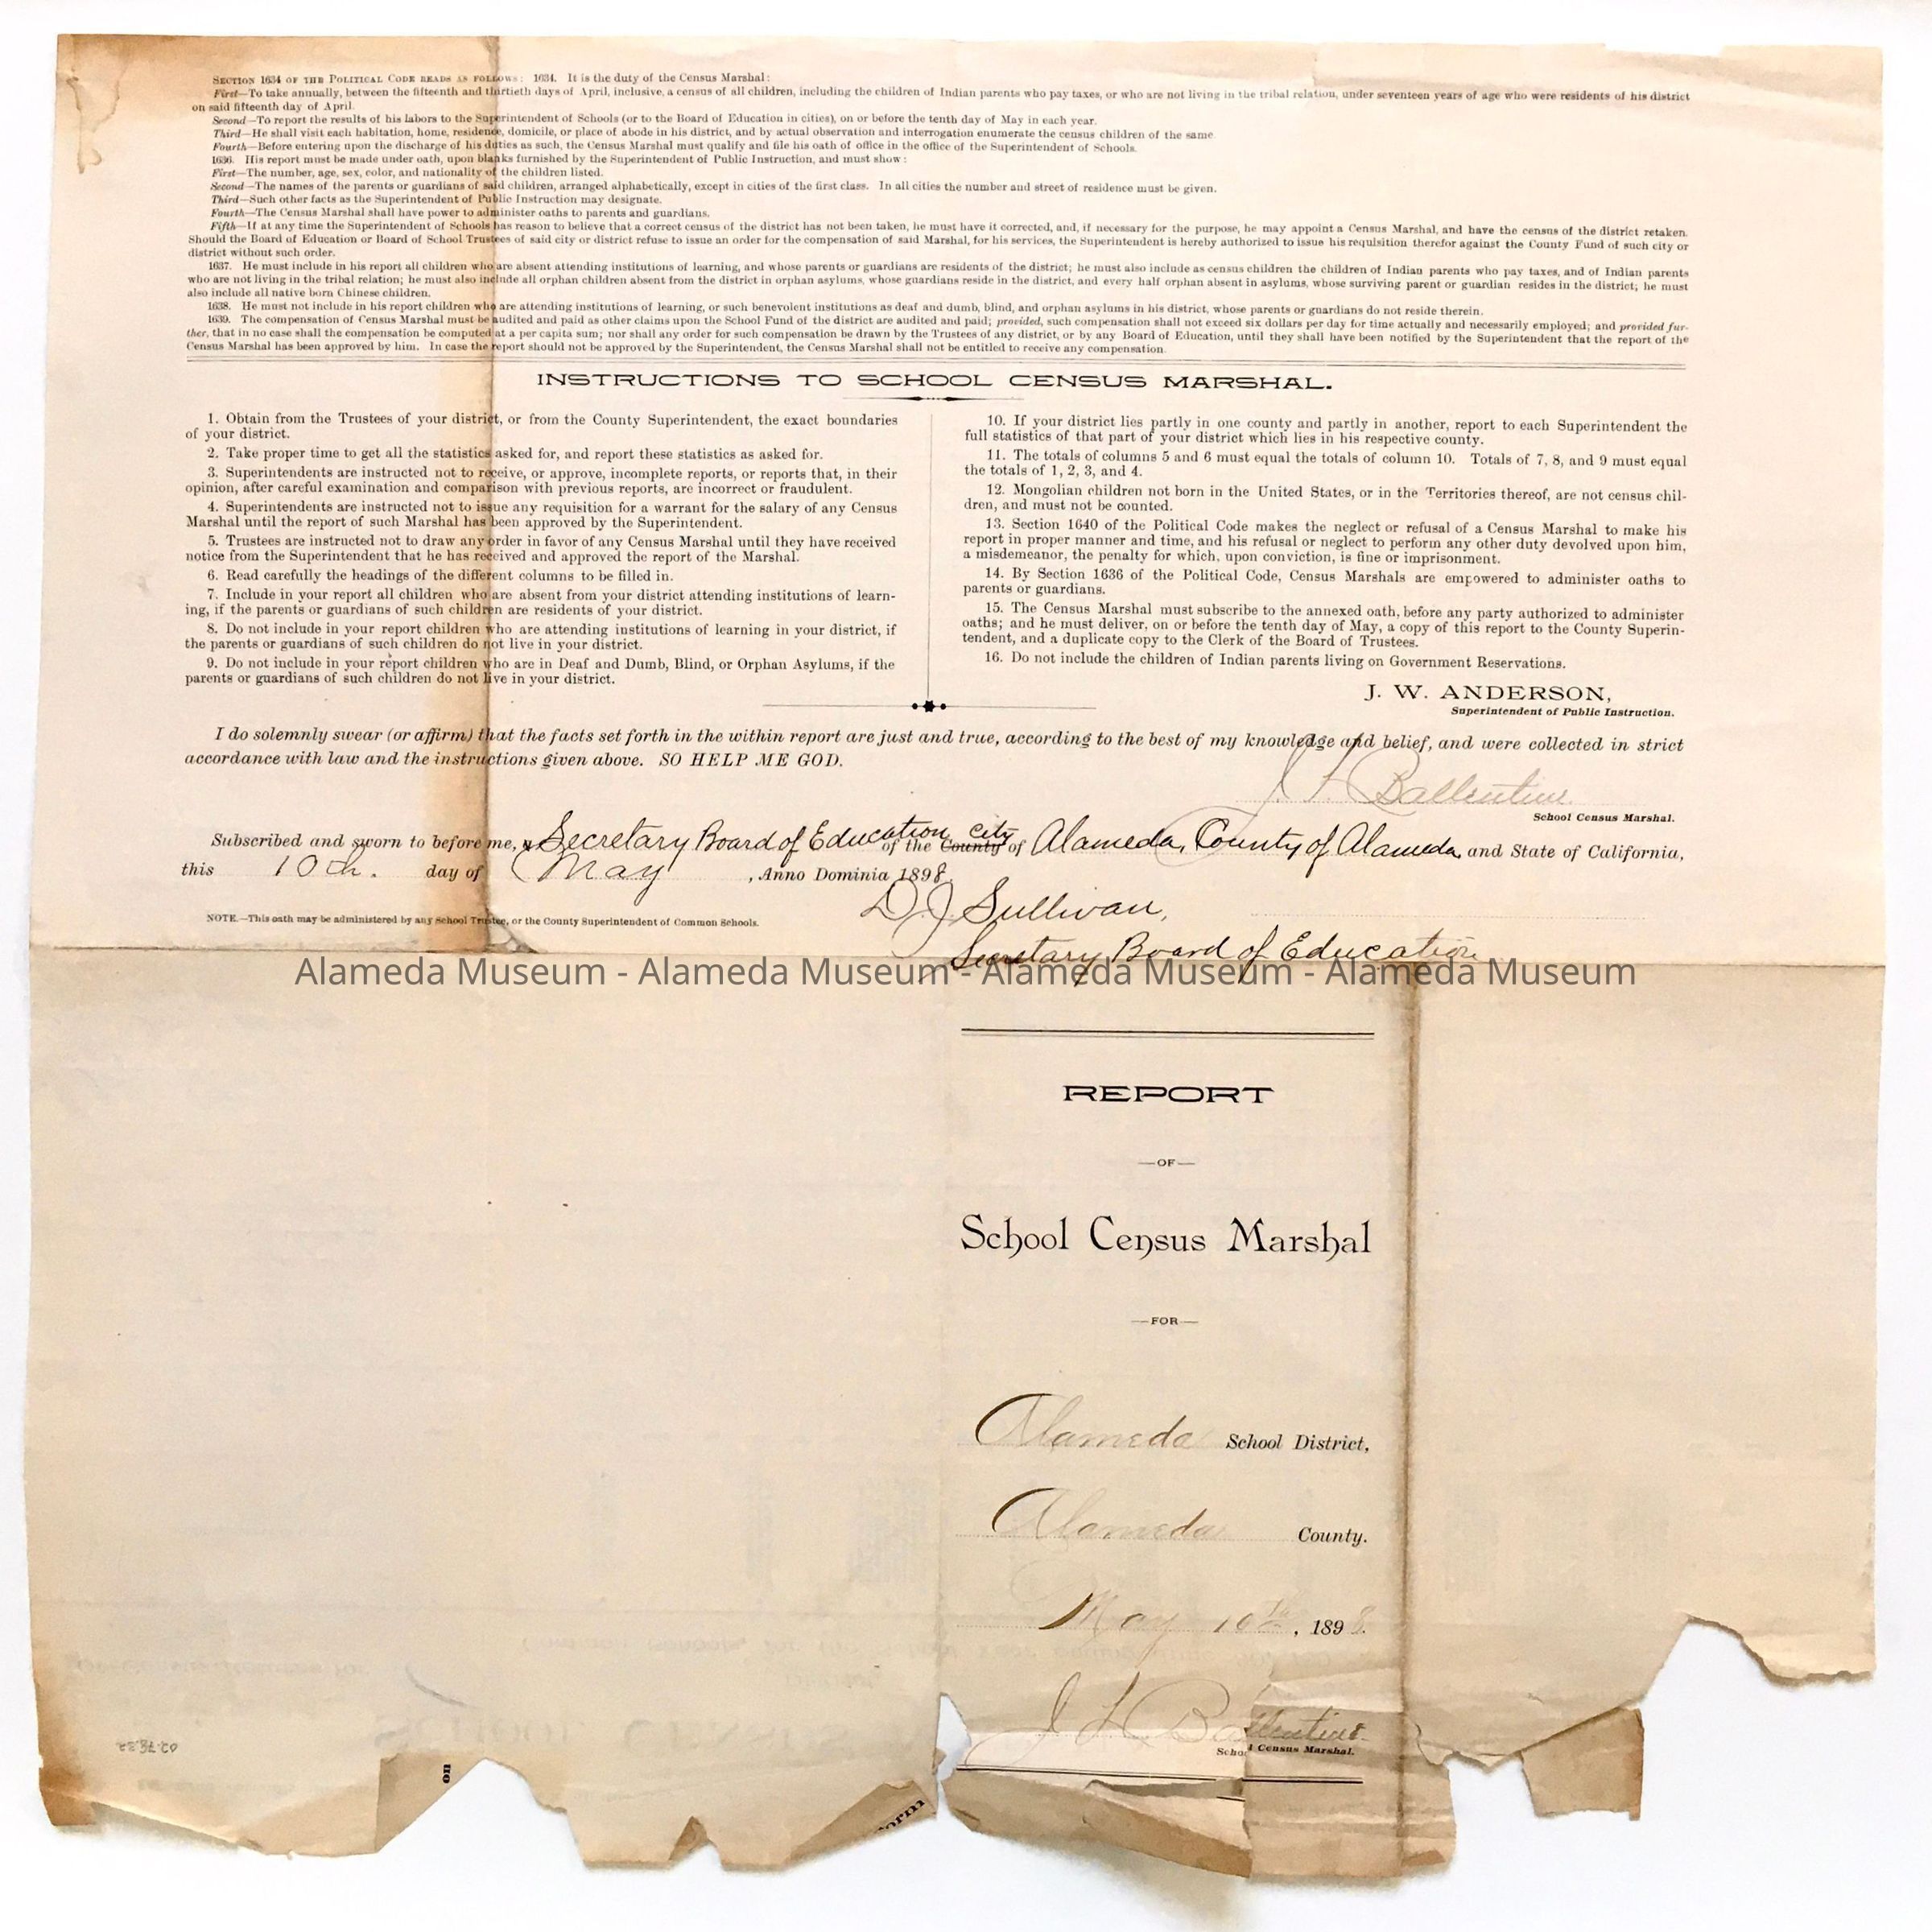 SECTION 1634 OF THE POLITICAL CODE READS AS FOLLOWS: 1634. It is the duty of the Census Marshal:
First—To take annually, between the fifteenth and thirtieth days of April, inclusive, a census of all children, including the children of Indian parents who pay taxes, or who are not living in the tribal relation, under seventeen years of age who were residents of his district
on said fifteenth day of April.
Second—To report the results of his labors to the Superintendent of Schools (or to the Board of Education in cities), on or before the tenth day of May in each year.
Third—He shall visit each habitation, home, residence, domicile, or place of abode in his district, and by actual observation and interrogation enumerate the census children of the same.
Fourth—Before entering upon the discharge of his duties as such, the Census Marshal must qualify and file his oath of office in the office of the Superintendent of Schools.
1636. His report must be made under oath, upon blanks furnished by the Superintendent of Public Instruction, and must show:
First—The number, age, sex, color, and nationality of the children listed.
Second—The names of the parents or guardians of said children, arranged alphabetically, except in cities of the first class. In all cities the number and street of residence must be given.
Third—Such other facts as the Superintendent of Public Instruction may designate.
Fourth—The Census Marshal shall have power to administer oaths to parents and guardians.
Fifth—If at any time the Superintendent of Schools has reason to believe that a correct census of the district has not been taken, he must have it corrected, and, if necessary for the purpose, he may appoint a Census Marshal, and have the census of the district retaken.
Should the Board of Education or Board of School Trustees of said city or district refuse to issue an order for the compensation of said Marshal, for his services, the Superintendent is hereby authorized to issue his requisition therefor against the County Fund of such city or
district without such order.
1637. He must include in his report all children who are absent attending institutions of learning, and whose parents or guardians are residents of the district; he must also include as census children the children of Indian parents who pay taxes, and of Indian parents
who are not living in the tribal relation; he must also include all orphan children absent from the district in orphan asylums, whose guardians reside in the district, and every half orphan absent in asylums, whose surviving parent or guardian resides in the district; he must
also include all native born Chinese children.
1638. He must not include in his report children who are attending institutions of learning, or such benevolent institutions as deaf and dumb, blind, and orphan asylums in his district, whose parents or guardians do not reside therein.
1639. The compensation of Census Marshal must be audited and paid as other claims upon the School Fund of the district are audited and paid; provided, such compensation shall not exceed six dollars per day for time actually and necessarily employed; and provided fur-
ther, that in no case shall the compensation be computed at a per capita sum; nor shall any order for such compensation be drawn by the Trustees of any district, or by any Board of Education, until they shall have been notified by the Superintendent that the report of the
Census Marshal has been approved by him. In case the report should not be approved by the Superintendent, the Census Marshal shall not be entitled to receive any compensation.
INSTRUCTIONS TO SCHOOL CENSUS MARSHAL.
1. Obtain from the Trustees of your district, or from the County Superintendent, the exact boundaries
of your district.
2. Take proper time to get all the statistics asked for, and report these statistics as asked for.
3. Superintendents are instructed not to receive, or approve, incomplete reports, or reports that, in their
opinion, after careful examination and comparison with previous reports, are incorrect or fraudulent.
4. Superintendents are instructed not to issue any requisition for a warrant for the salary of any Census
Marshal until the report of such Marshal has been approved by the Superintendent.
5. Trustees are instructed not to draw any order in favor of any Census Marshal until they have received
notice from the Superintendent that he has received and approved the report of the Marshal.
6. Read carefully the headings of the different columns to be filled in.
7. Include in your report all children who are absent from your district attending institutions of learn-
ing, if the parents or guardians of such children are residents of your district.
8. Do not include in your report children who are attending institutions of learning in your district, if
the parents or guardians of such children do not live in your district.
9. Do not include in your report children who are in Deaf and Dumb, Blind, or Orphan Asylums, if the
parents or guardians of such children do not live in your district.
10. If your district lies partly in one county and partly in another, report to each Superintendent the
full statistics of that part of your district which lies in his respective county.
11. The totals of columns 5 and 6 must equal the totals of column 10. Totals of 7, 8, and 9 must equal
the totals of 1, 2, 3, and 4.
12. Mongolian children not born in the United States, or in the Territories thereof, are not census chil-
dren, and must not be counted.
13. Section 1640 of the Political Code makes the neglect or refusal of a Census Marshal to make his
report in proper manner and time, and his refusal or neglect to perform any other duty devolved upon him,
a misdemeanor, the penalty for which, upon conviction, is fine or imprisonment.
14. By Section 1636 of the Political Code, Census Marshals are empowered to administer oaths to
parents or guardians.
15. The Census Marshal must subscribe to the annexed oath, before any party authorized to administer
oaths; and he must deliver, on or before the tenth day of May, a copy of this report to the County Superin-
tendent, and a duplicate copy to the Clerk of the Board of Trustees.
16. Do not include the children of Indian parents living on Government Reservations.
J. W. ANDERSON,
Superintendent of Public Instruction.
I do solemnly swear (or affirm) that the facts set forth in the within report are just and true, according to the best of my knowledge and belief, and were collected in strict
accordance with law and the instructions given above. SO HELP ME GOD.
J F Ballentine
School Census Marshal.
Subscribed and sworn to before me, Secretary Board of Education of the County city of Alameda, County of Alameda, and State of California,
this 10th. day of May, Anno Dominia 1898.
D. J. Sullivan,
Secretary Board of Education
NOTE.—This oath may be administered by any School Trustee, or the County Superintendent of Common Schools.
Alameda Museum - Alameda Museum - Alameda Museum - Alameda Museum
REPORT
—OF—
School Census Marshal
—FOR—
Alameda School District,
Alameda County.
May 10th, 1898.
J F Ballentine
School Census Marshal.
02.78.22
on
orm